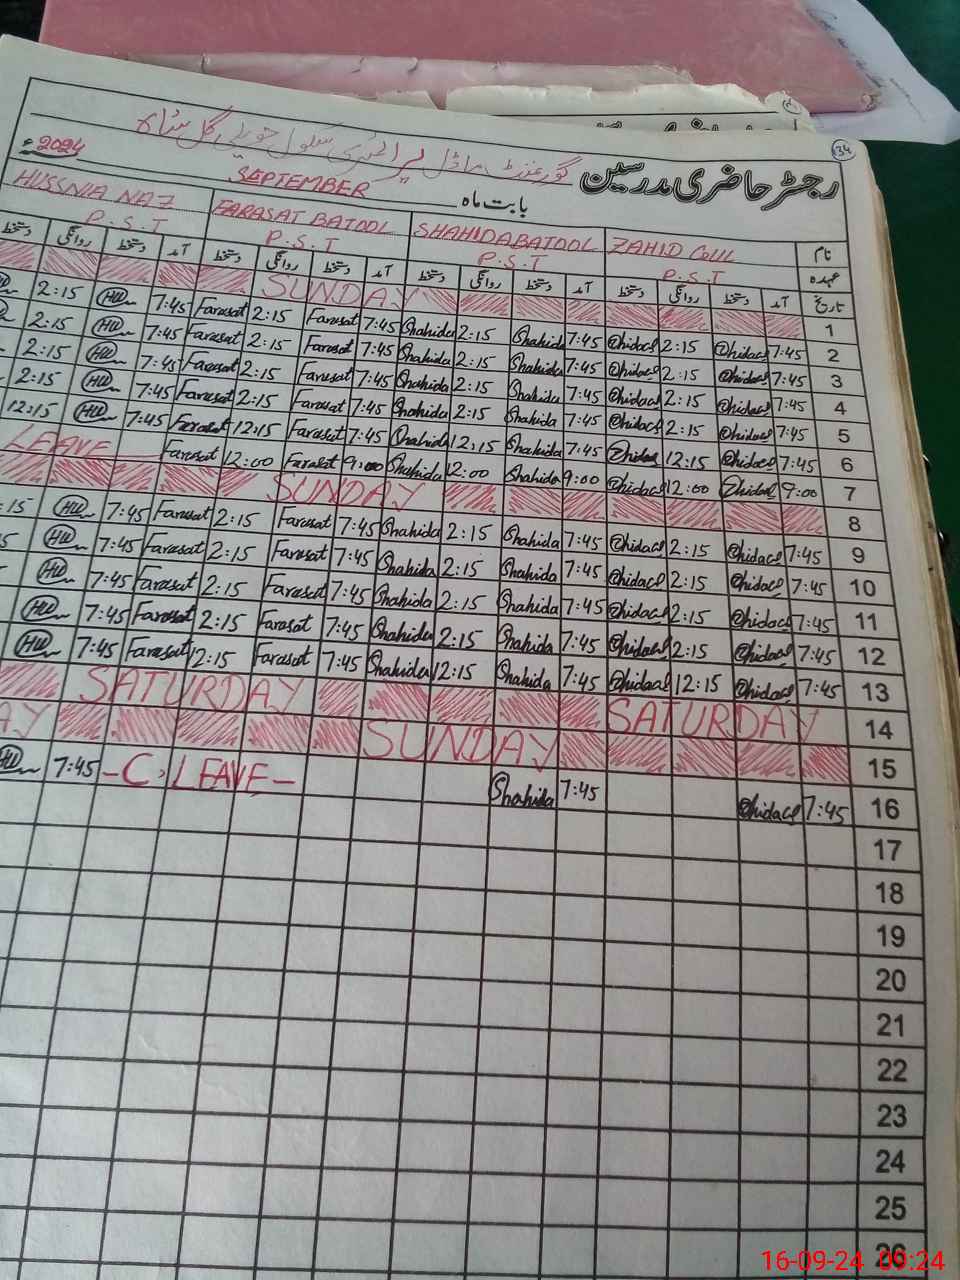 34
رجسٹر حاضری مدرسین گورنمنٹ ماڈل پرائمری سکول حویلی گل شاہ
بابت ماہ SEPTEMBER 2024ء
نام ZAHID GULL SHAHIDA BATOOL FARASAT BATOOL HUSSNIA NAZ
عہدہ P.S.T P.S.T P.S.T P.S.T
تاریخ آمد دستخط روانگی دستخط آمد دستخط روانگی دستخط آمد دستخط روانگی دستخط آمد دستخط روانگی دستخط
1 SUNDAY
2 7:45 2:15 7:45 Shahida 2:15 Shahida 7:45 Farasat 2:15 Farasat 7:45 2:15
3 7:45 2:15 7:45 Shahida 2:15 Shahida 7:45 Farasat 2:15 Farasat 7:45 2:15
4 7:45 2:15 7:45 Shahida 2:15 Shahida 7:45 Farasat 2:15 Farasat 7:45 2:15
5 7:45 2:15 7:45 Shahida 2:15 Shahida 7:45 Farasat 2:15 Farasat 7:45 2:15
6 7:45 12:15 7:45 Shahida 12:15 Shahida 7:45 Farasat 12:15 Farasat 7:45 12:15
7 9:00 12:00 9:00 Shahida 12:00 Shahida 9:00 Farasat 12:00 Farasat LEAVE
8 SUNDAY
9 7:45 2:15 7:45 Shahida 2:15 Shahida 7:45 Farasat 2:15 Farasat 7:45 :15
10 7:45 2:15 7:45 Shahida 2:15 Shahida 7:45 Farasat 2:15 Farasat 7:45 5
11 7:45 2:15 7:45 Shahida 2:15 Shahida 7:45 Farasat 2:15 Farasat 7:45
12 7:45 2:15 7:45 Shahida 2:15 Shahida 7:45 Farasat 2:15 Farasat 7:45
13 7:45 12:15 7:45 Shahida 12:15 Shahida 7:45 Farasat 12:15 Farasat 7:45
14 SATURDAY SATURDAY
15 SUNDAY AY
16 7:45 7:45 Shahida - C. LEAVE - 7:45
17
18
19
20
21
22
23
24
25
26
16-09-24 09:24